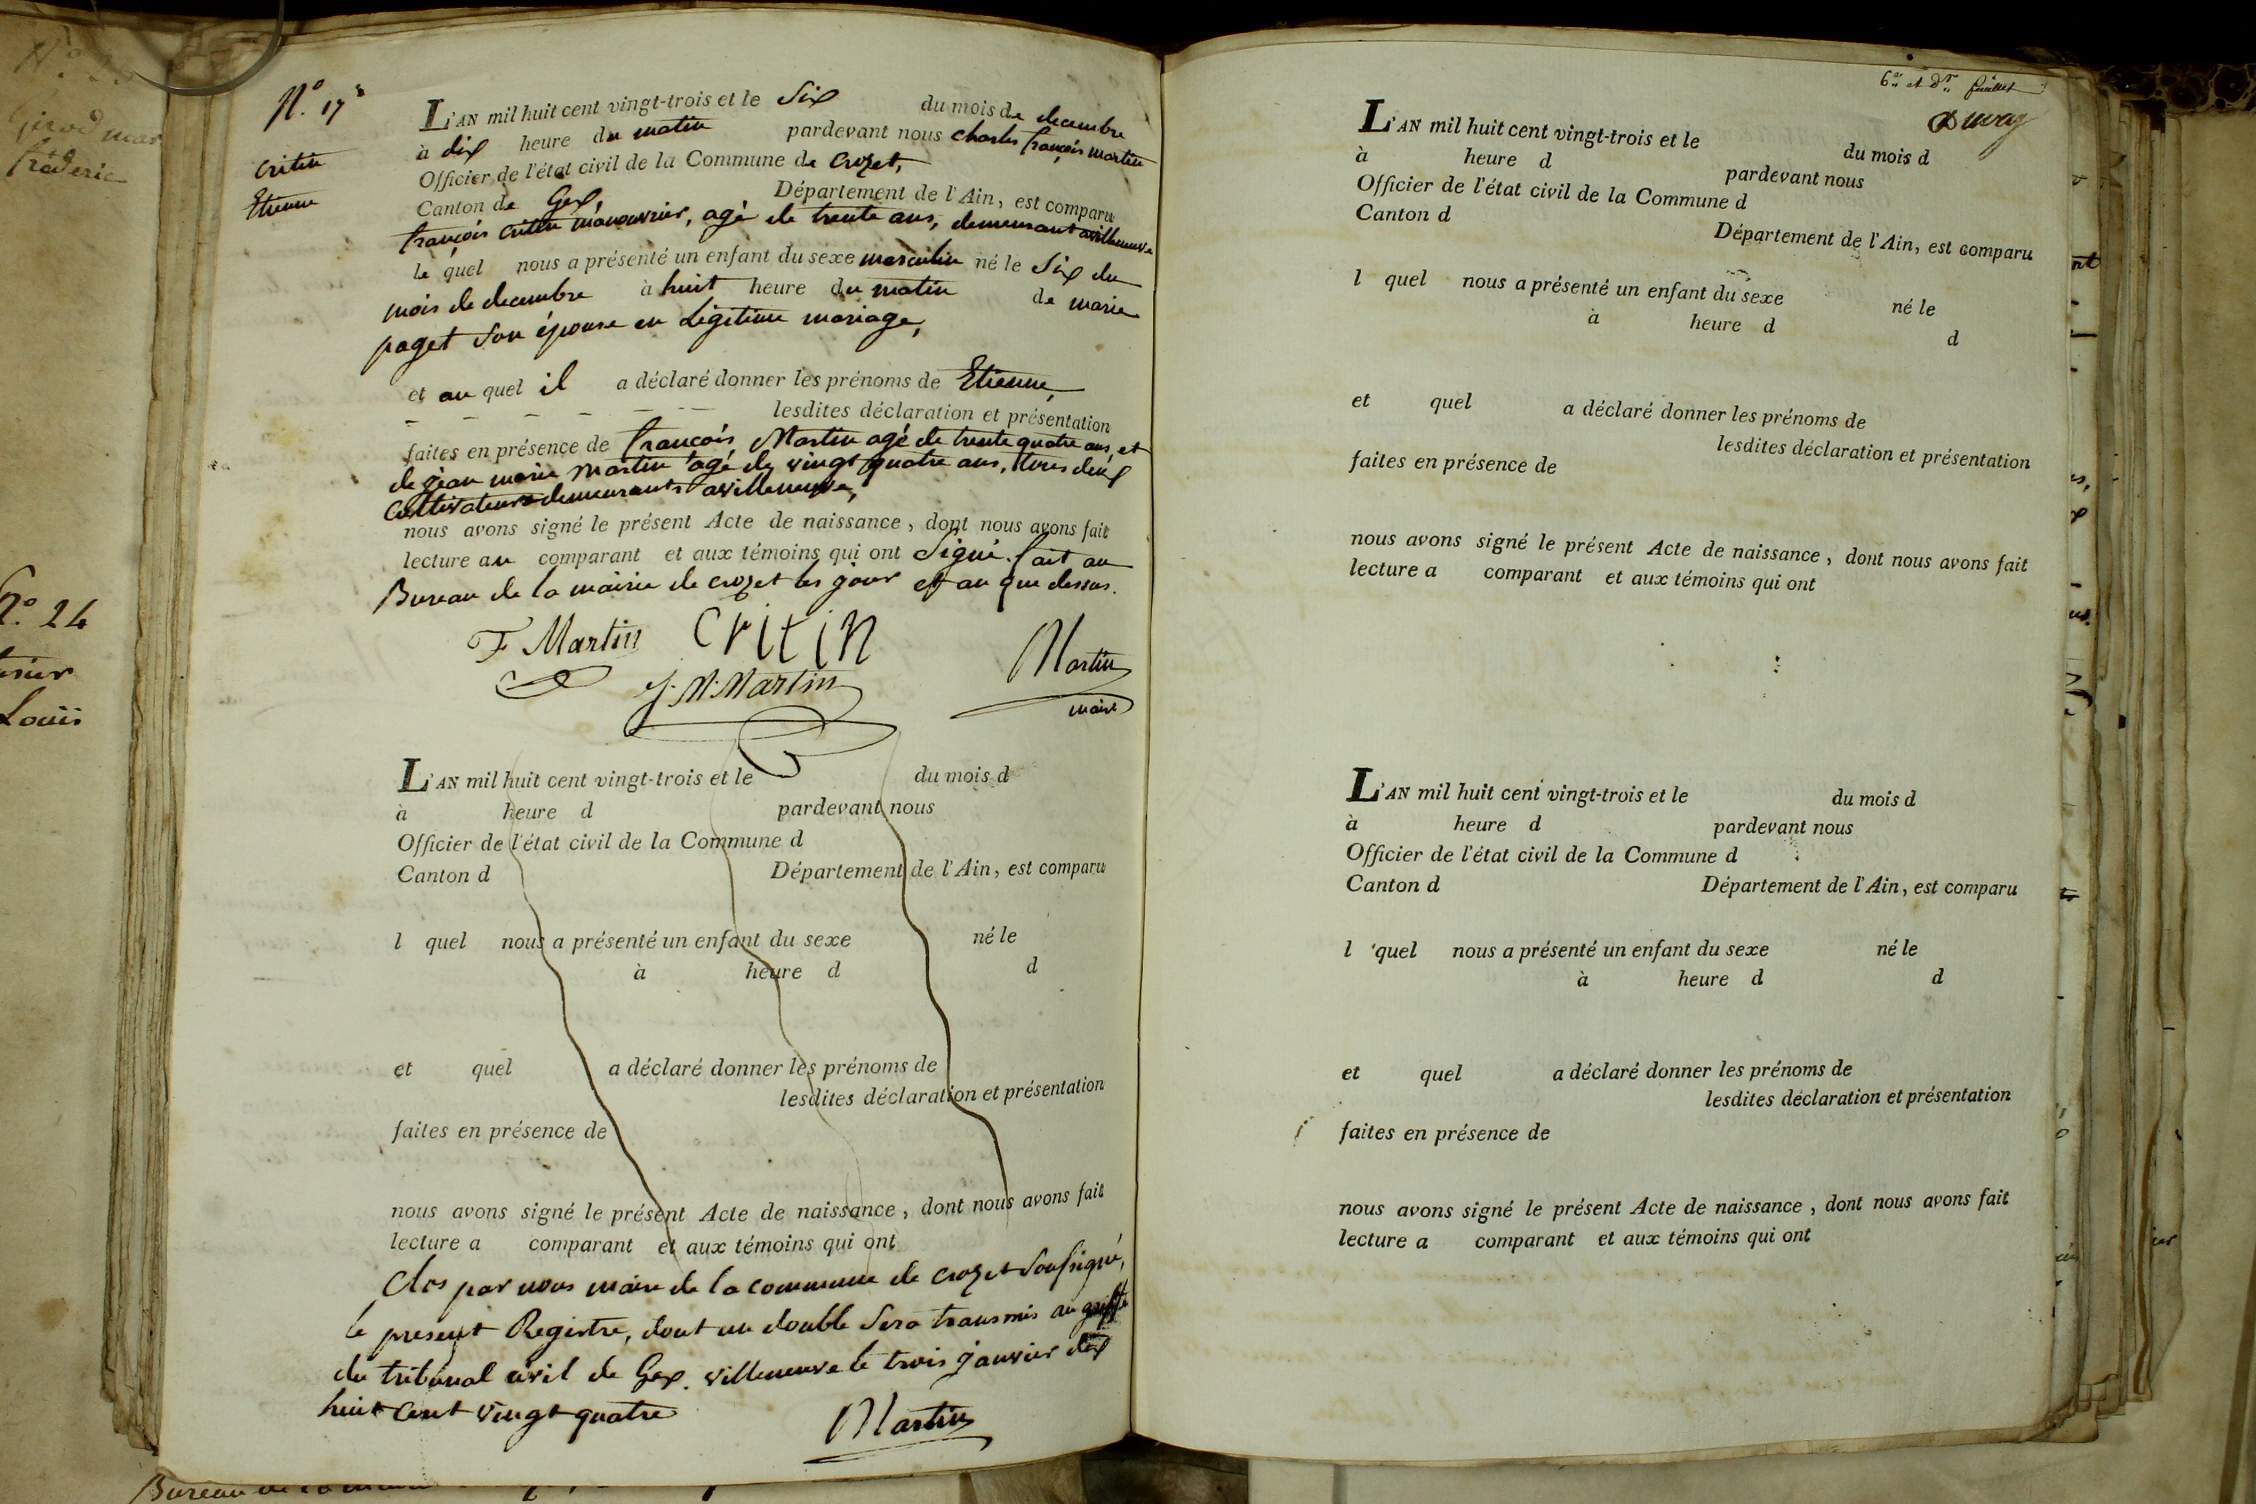 N.° 17
critin
Etienne
L'AN mil huit cent vingt-trois et le Six du mois de decembre
à dix heure du matin pardevant nous charles françois martin
Officier de l'état civil de la Commune de Crozet,
Canton de Gex, Département de l'Ain, est comparu
françois critin manouvrier, agé de trente ans, demeurant a villeneuve
le quel nous a présenté un enfant du sexe masculin né le Six du
mois de decembre à huit heure du matin de marie
paget son épouse en Légitime mariage,
et au quel il a déclaré donner les prénoms de Etienne,
lesdites déclaration et présentation
faites en présence de françois Martin agé de trente quatre ans, et
de jean marie Martin agé de vingt quatre ans, tous deux
Cultivateurs demeurants a villeneuve,
nous avons signé le présent Acte de naissance, dont nous avons fait
lecture au comparant et aux témoins qui ont Signé. fait au
Bureau de la mairie de crozet les jour et an que dessus.
F Martin Critin
J. M. Martin
Martin
maire
L'AN mil huit cent vingt-trois et le du mois d
à heure d pardevant nous
Officier de l'état civil de la Commune d
Canton d Département de l'Ain, est comparu
l quel nous a présenté un enfant du sexe né le
à heure d d
et quel a déclaré donner les prénoms de
lesdites déclaration et présentation
faites en présence de
nous avons signé le présent Acte de naissance, dont nous avons fait
lecture a comparant et aux témoins qui ont
Clos par nous maire de la commune de crozet Soussigné,
le present Registre, dont un double Sera transmis au greffe
du tribunal civil de Gex. villeneuve le trois janvier dix
huit Cent vingt quatre
Martin
6.e et d.r feuillet
Duvay
L'AN mil huit cent vingt-trois et le du mois d
à heure d pardevant nous
Officier de l'état civil de la Commune d
Canton d Département de l'Ain, est comparu
l quel nous a présenté un enfant du sexe né le
à heure d d
et quel a déclaré donner les prénoms de
lesdites déclaration et présentation
faites en présence de
nous avons signé le présent Acte de naissance, dont nous avons fait
lecture a comparant et aux témoins qui ont
L'AN mil huit cent vingt-trois et le du mois d
à heure d pardevant nous
Officier de l'état civil de la Commune d
Canton d Département de l'Ain, est comparu
l quel nous a présenté un enfant du sexe né le
à heure d d
et quel a déclaré donner les prénoms de
lesdites déclaration et présentation
faites en présence de
nous avons signé le présent Acte de naissance, dont nous avons fait
lecture a comparant et aux témoins qui ont
N.° 24
Louis